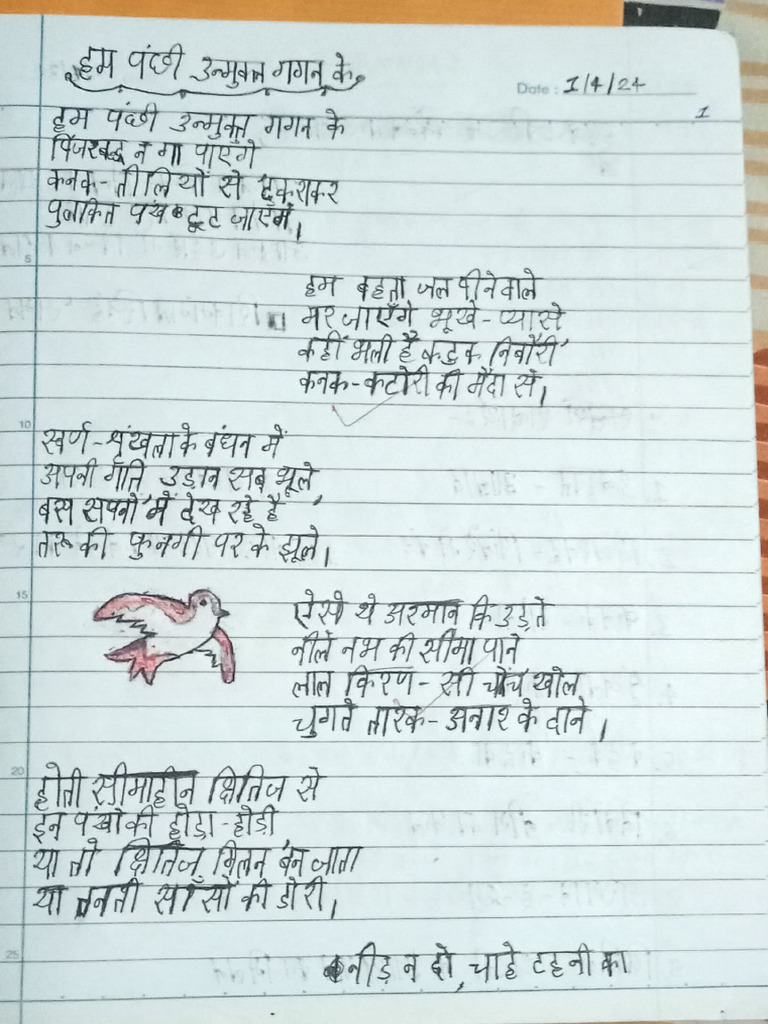 हम पंछी उन्मुक्त गगन के
Date : 1/4/24
1
हम पंछी उन्मुक्त गगन के
पिंजरबद्ध न गा पाएंगे
कनक-तीलियों से टकराकर
पुलकित पंख टूट जाएंगे।
5
हम बहता जल पीनेवाले
मर जाएँगे भूखे-प्यासे,
कहीं भली है कटुक निबौरी
कनक-कटोरी की मैदा से।
10
स्वर्ण-शृंखला के बंधन में
अपनी गति, उड़ान सब भूले,
बस सपनों में देख रहे हैं
तरू की फुनगी पर के झूले।
15
ऐसे थे अरमान कि उड़ते
नीले नभ की सीमा पाने
लाल किरण-सी चोंच खोल
चुगते तारक-अनार के दाने।
20
होती सीमाहीन क्षितिज से
इन पंखों की होड़ा-होड़ी,
या तो क्षितिज मिलन बन जाता
या तनती साँसों की डोरी।
25
नीड़ न दो, चाहे टहनी का